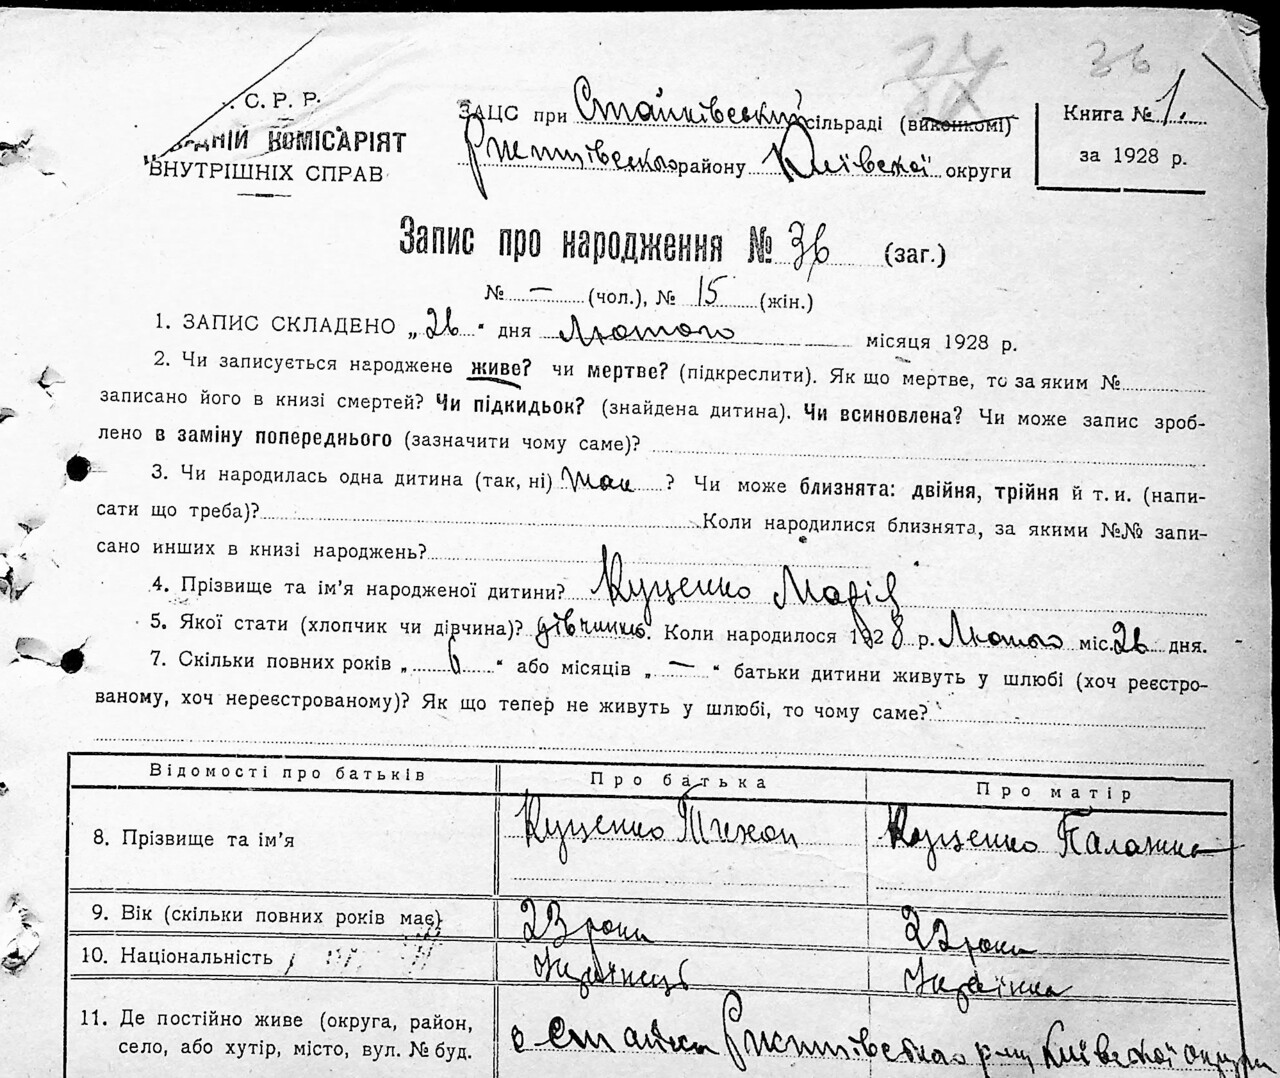 37 36
. С. Р. Р.
ЗАЦС при Стайківський сільраді (виконкомі)
Книга № 1.
ДНІЙ КОМІСАРІЯТ
Ржищівського району Київської округи
за 1928 р.
ВНУТРІШНІХ СПРАВ
Запис про народження № 36 (заг.)
№ — (чол.), № 15 (жін.)
1. ЗАПИС СКЛАДЕНО „26“ дня Лютого місяця 1928 р.
2. Чи записується народжене живе? чи мертве? (підкреслити). Як що мертве, то за яким №
записано його в книзі смертей? Чи підкидьок? (знайдена дитина). Чи всиновлена? Чи може запис зроб-
лено в заміну попереднього (зазначити чому саме)?
3. Чи народилась одна дитина (так, ні) так ? Чи може близнята: двійня, трійня й т. и. (напи-
сати що треба)? Коли народилися близнята, за якими №№ запи-
сано инших в книзі народжень?
4. Прізвище та ім’я народженої дитини? Куценко Марія
5. Якої стати (хлопчик чи дівчина)? дівчинка. Коли народилося 1928 р. Лютого міс. 26 дня.
7. Скільки повних років „ 6 “ або місяців „ — “ батьки дитини живуть у шлюбі (хоч реєстро-
ваному, хоч нереєстрованому)? Як що тепер не живуть у шлюбі, то чому саме?
Відомості про батьків Про батька Про матір
8. Прізвище та ім’я Куценко Тихон Куценко Палажка
9. Вік (скільки повних років має) 23 роки 22 роки
10. Національність Українець Українка
11. Де постійно живе (округа, район,
село, або хутір, місто, вул. № буд.
с Стайки Ржищівського р-ну Київської округи